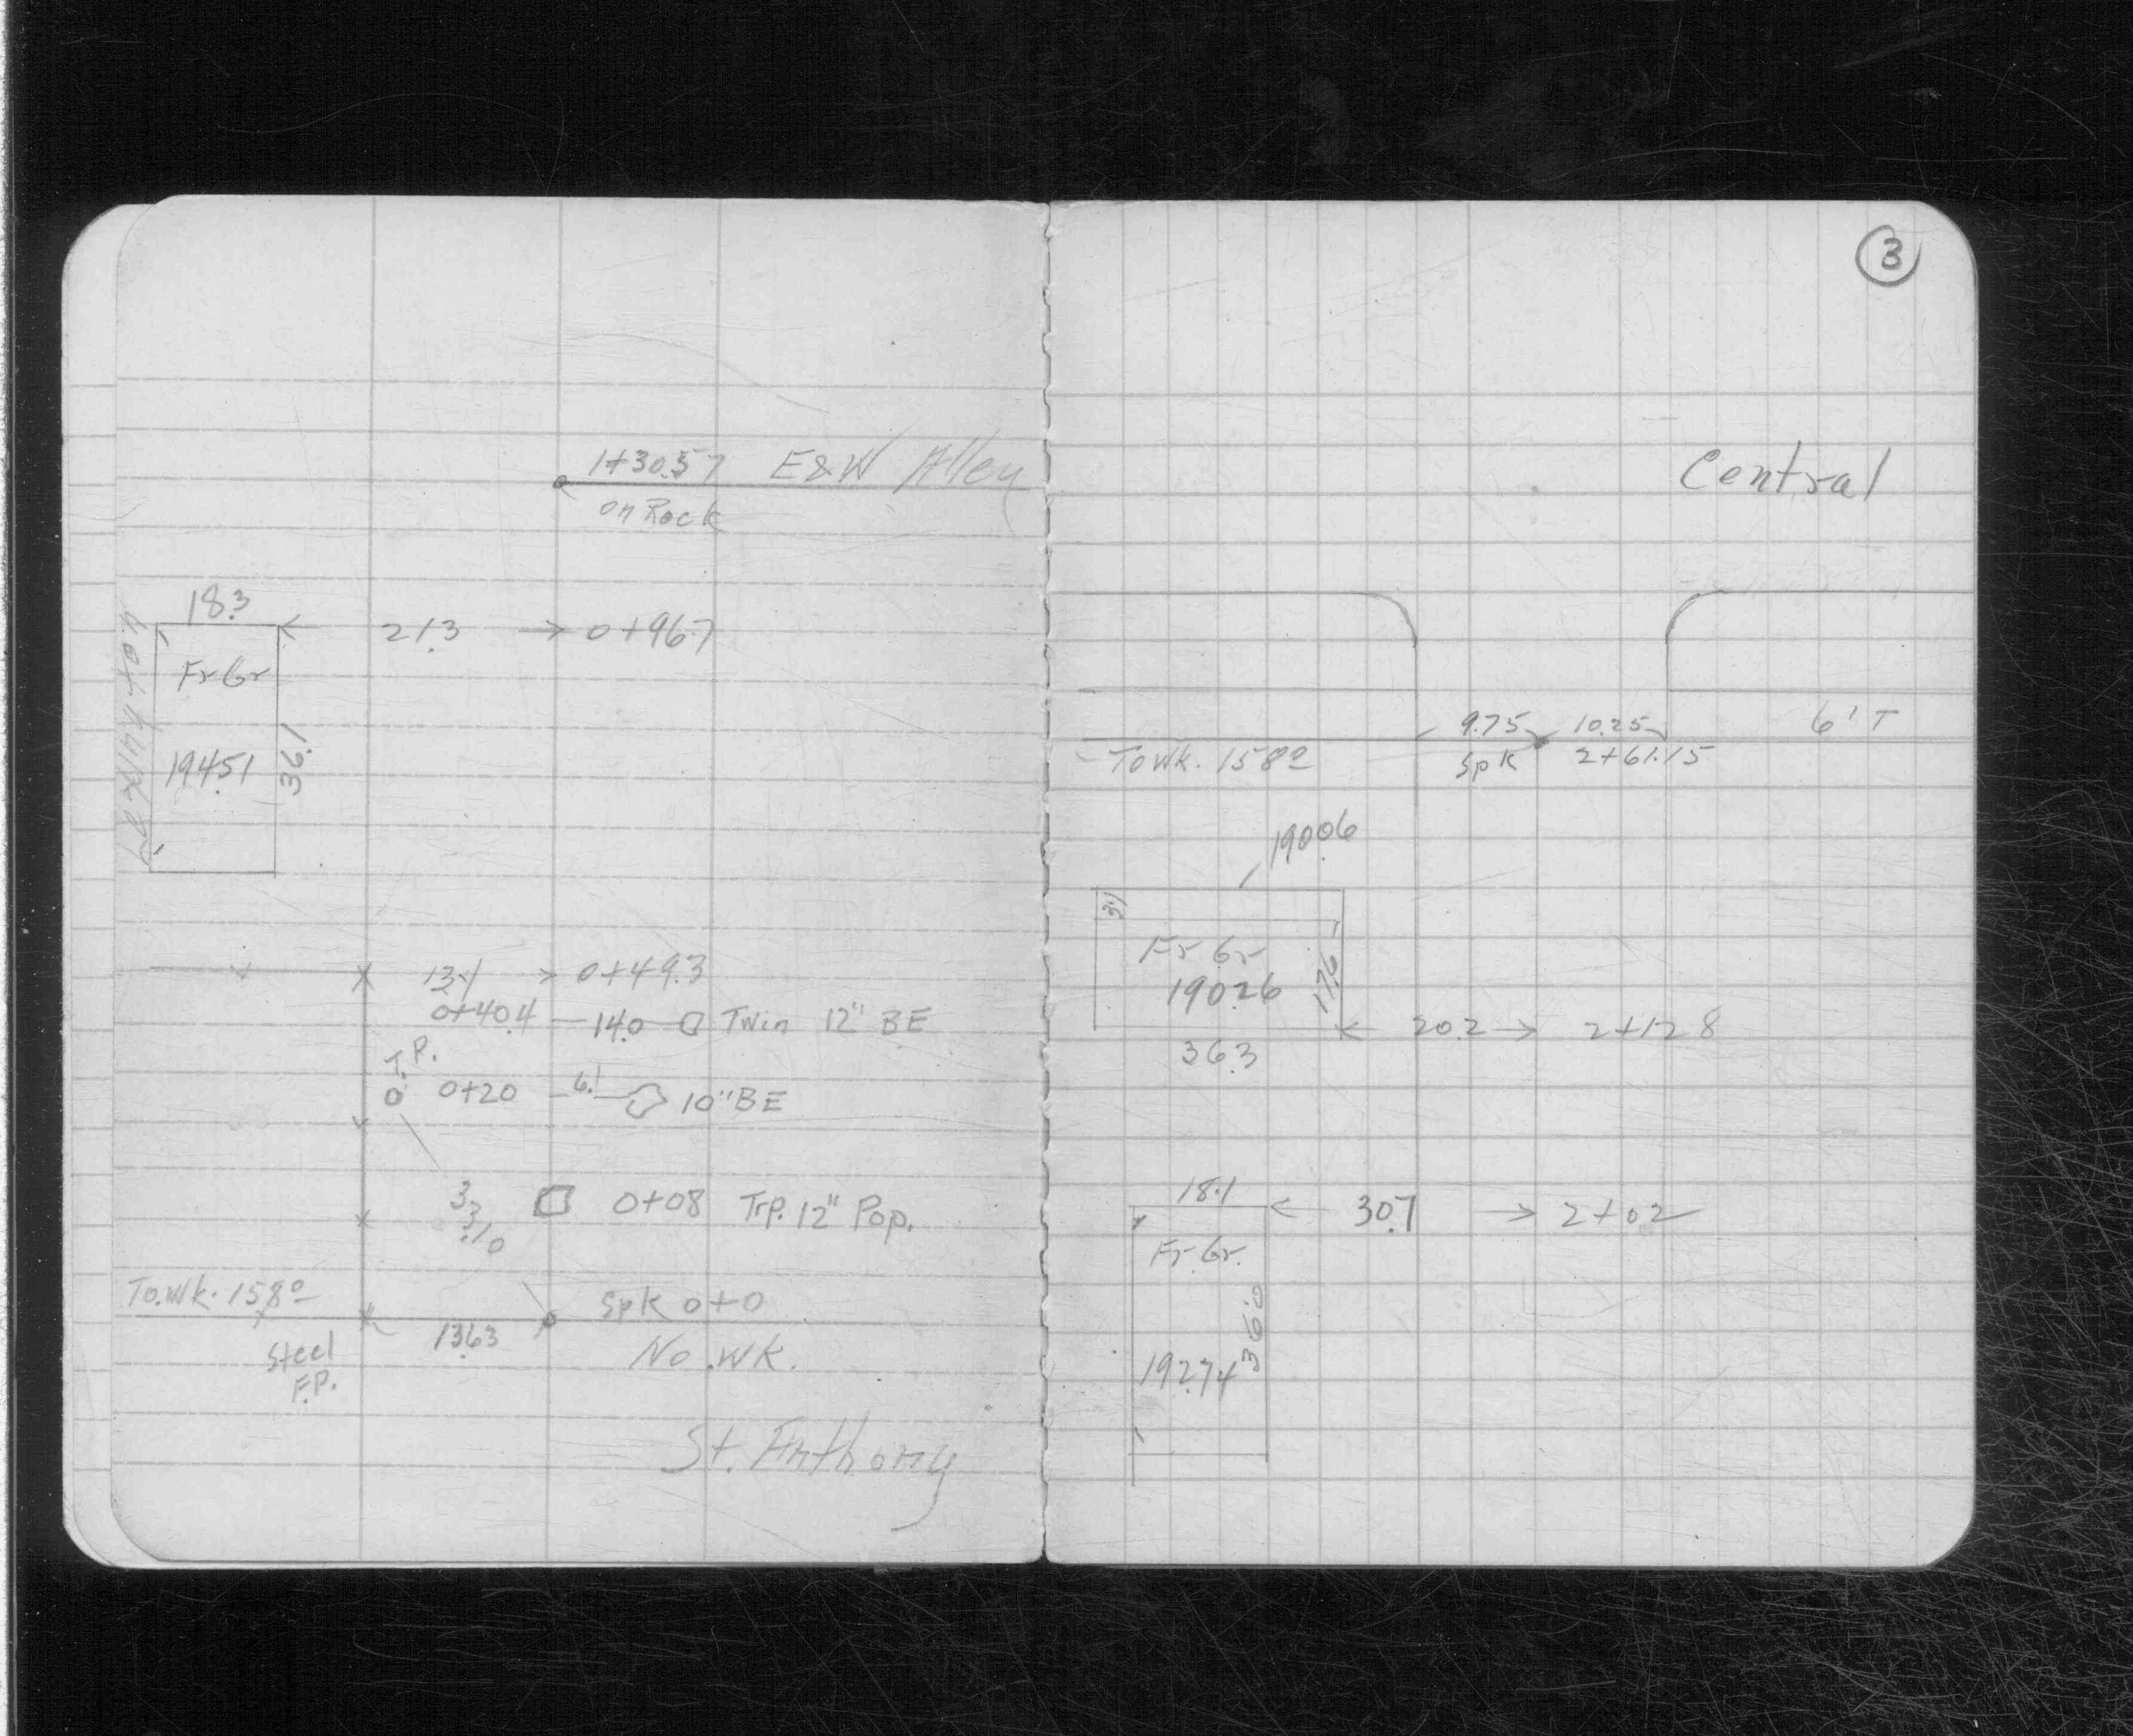 1+30.57 E&W Alley
on Rock
18.3
21.3 → 0+96.7
Fr Gr
194.51
36.1
13.1 > 0+49.3
0+40.4 — 14.0 — Twin 12" BE
T.P.
0 0+20 — 6.1 — 10" BE
33/0
0+08 Trp. 12" Pop.
To.Wk. 158º
Spk 0+0
13.63
Steel
F.P.
No. WK.
St. Anthony
3
Central
9.75 10.25
6' T
To Wk. 158º
Spk 2+61.15
190.06
3.1
Fr Gr
190.26
17.6
← 20.2 → 2+12.8
36.3
18.1
← 30.7 → 2+02
Fr. Gr.
36.0
192.74